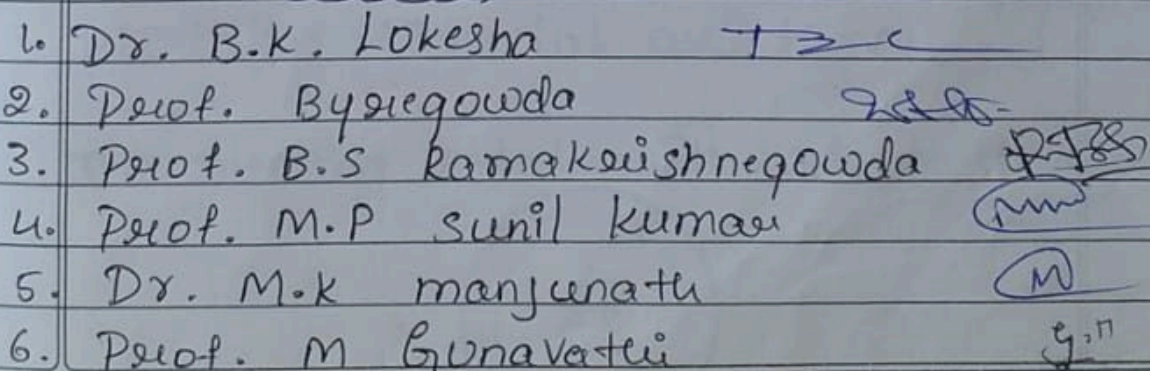 1. Dr. B.K. Lokesha
2. Prof. Byregowda
3. Prof. B.S Ramakrishnegowda
4. Prof. M.P sunil kumar
5. Dr. M.K manjunath
6. Prof. M Gunavathi